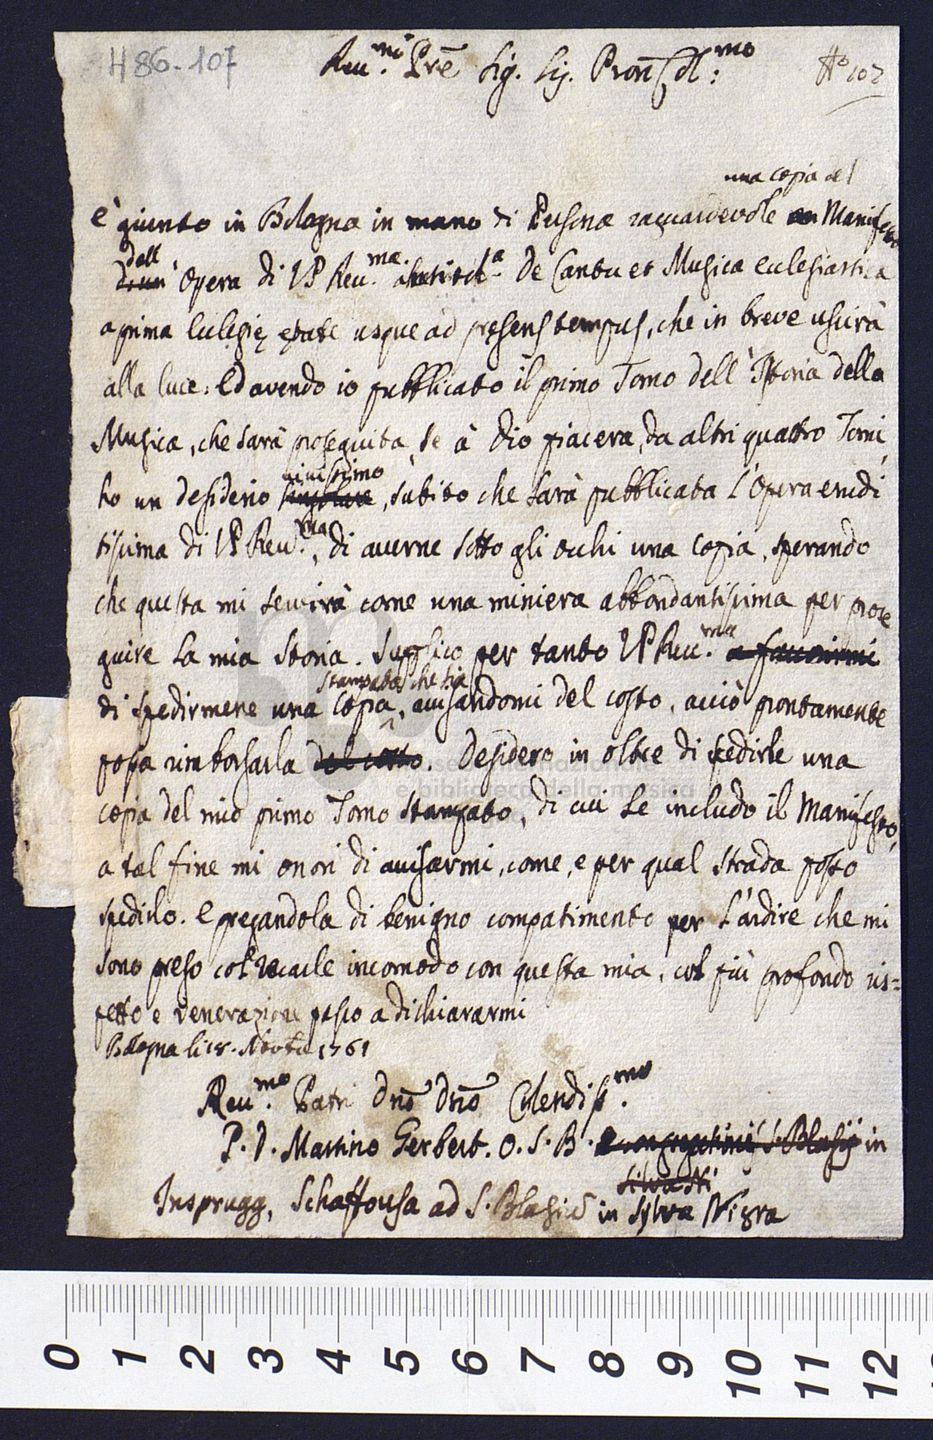 H 86. 107
Rev.mo Prē Sig. Sig. Pron Col:mo
No 107
una copia del
È giunto in Bologna in mano di Persona ragguardevole un Manifesto
dell
d'un Opera di V P Rev.ma intitola De Cantu et Musica ecclesiastica
a prima Ecclesię ętate usque ad presens tempus, che in breve uscirà
alla luce: Ed avendo io pubblicato il primo Tomo dell'Istoria della
Musica, che sarà proseguita, se à Dio piacerà, da altri quattro Tomi,
vivissimo
ho un desiderio, subito che sarà pubblicata l'Opera erudi
tissima di V P Rev.ma, di averne sotto gli occhi una Copia, sperando
che questa mi servirà come una miniera abbondantissima per prose
guire la mia Storia. Supplico per tanto V P Rev.ma a favorirmi
stampata che sia
di spedirmene una Copia, avisandomi del costo, acciò prontamente
possa rimborsarla del costo. Desidero in oltre di spedirle una
copia del mio primo Tomo stampato, di cui Le includo il Manifesto,
a tal fine mi onori di avisarmi, come, e per qual strada posso
spedirlo. E pregandola di benigno compatimento per l'ardire che mi
sono preso col recarle incomodo con questa mia, col più profondo ris=
petto e venerazione passo a dichiararmi
Bologna li 18. Novbr 1761
Rev.mo Patri Dnō Dnō Colendiss.mo
P. D. Martino Gerbert. O. S. B. Congregationis S. Blasij in
silvestri
Insprugg, Schaffousa ad S. Blasiū in Sylva Nigra
0 1 2 3 4 5 6 7 8 9 10 11 12